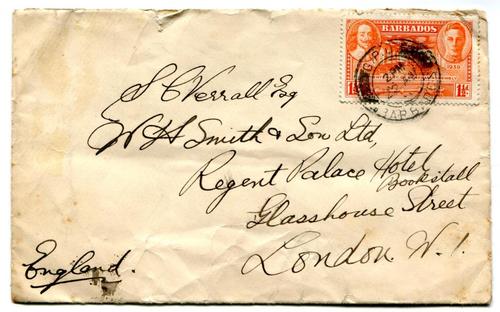 BARBADOS
1½d 1½d
S C Verrall Esq
W H Smith & Son Ltd,
Regent Palace Hotel
Bookstall
Glasshouse Street
London. W.1.
England.